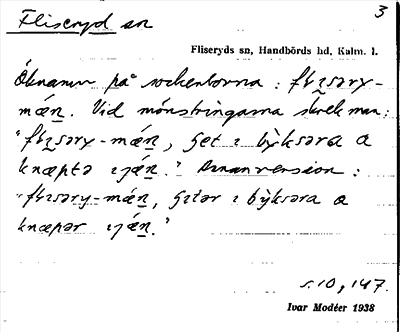 Fliseryd sn
3
Fliseryds sn, Handbörds hd, Kalm. l.
Öknamn på sockenborna: flisəry-
mæn. Vid mönstringarna skrek man:
"flisəry-mæn, ʃet ı bỳksəra a
knæptə ıjæn." Annan version:
"flisəry-mæn, ʃitər ı bỳksəra a
knæpər ıjæn."
s. 10, 147.
Ivar Modéer 1938